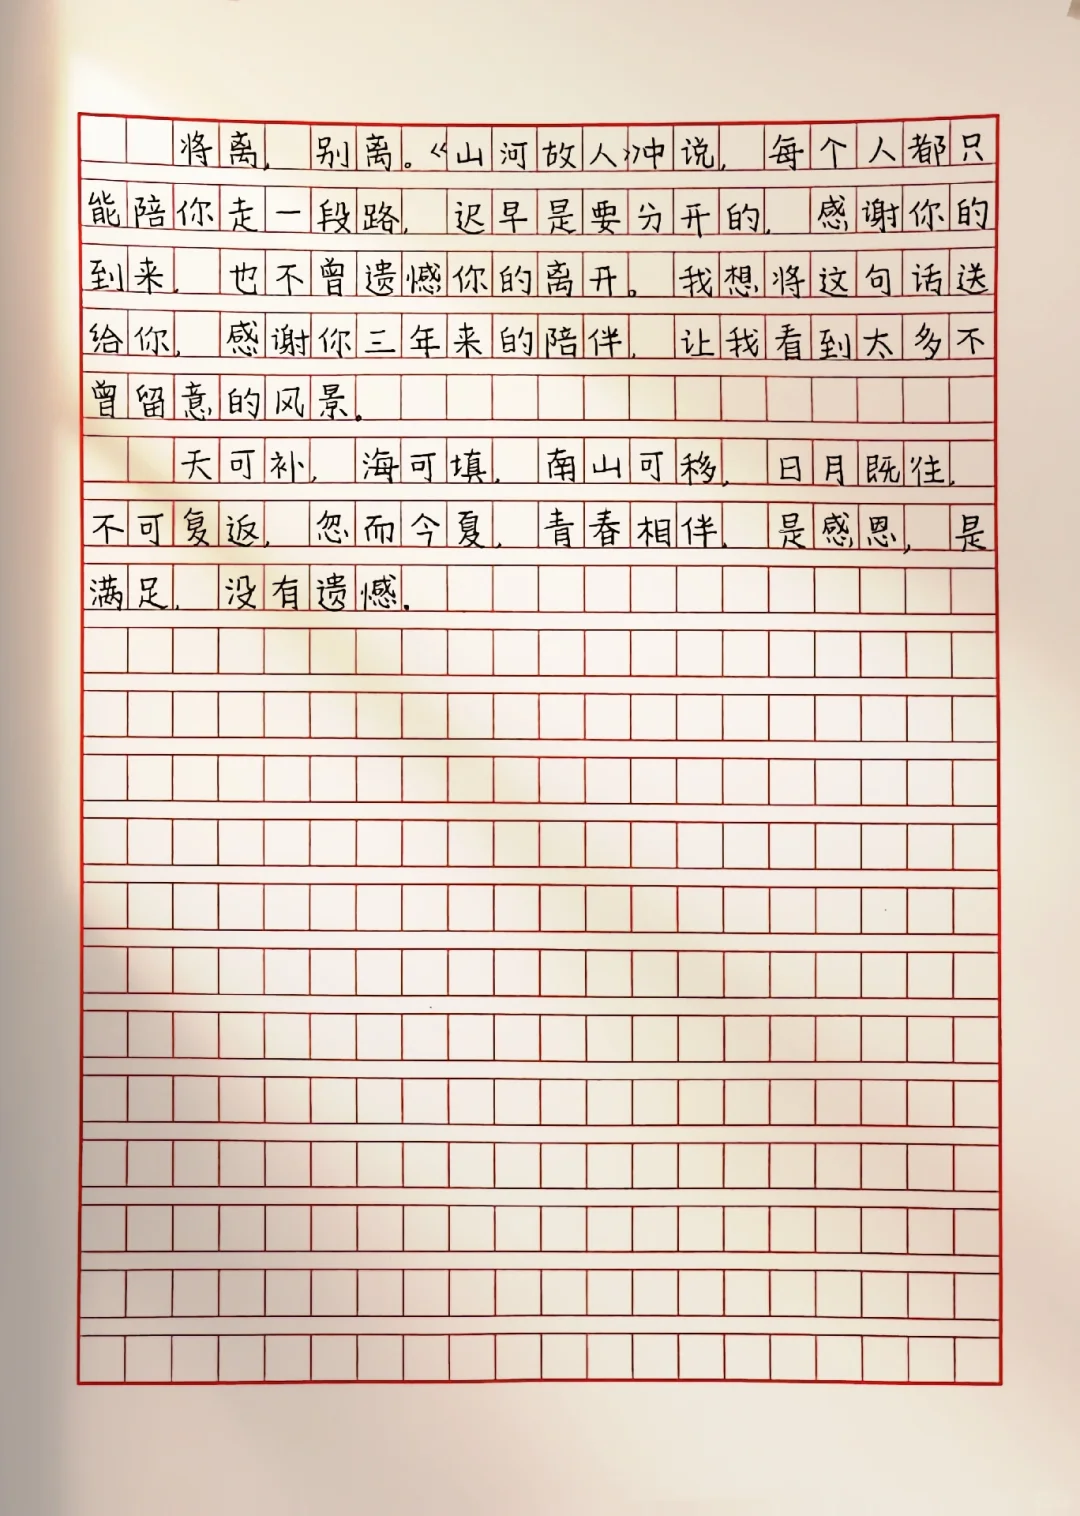 将离，别离。《山河故人》中说，每个人都只
能陪你走一段路，迟早是要分开的，感谢你的
到来，也不曾遗憾你的离开。我想将这句话送
给你，感谢你三年来的陪伴，让我看到太多不
曾留意的风景。
天可补，海可填，南山可移，日月既往，
不可复返，忽而今夏，青春相伴，是感恩，是
满足，没有遗憾。